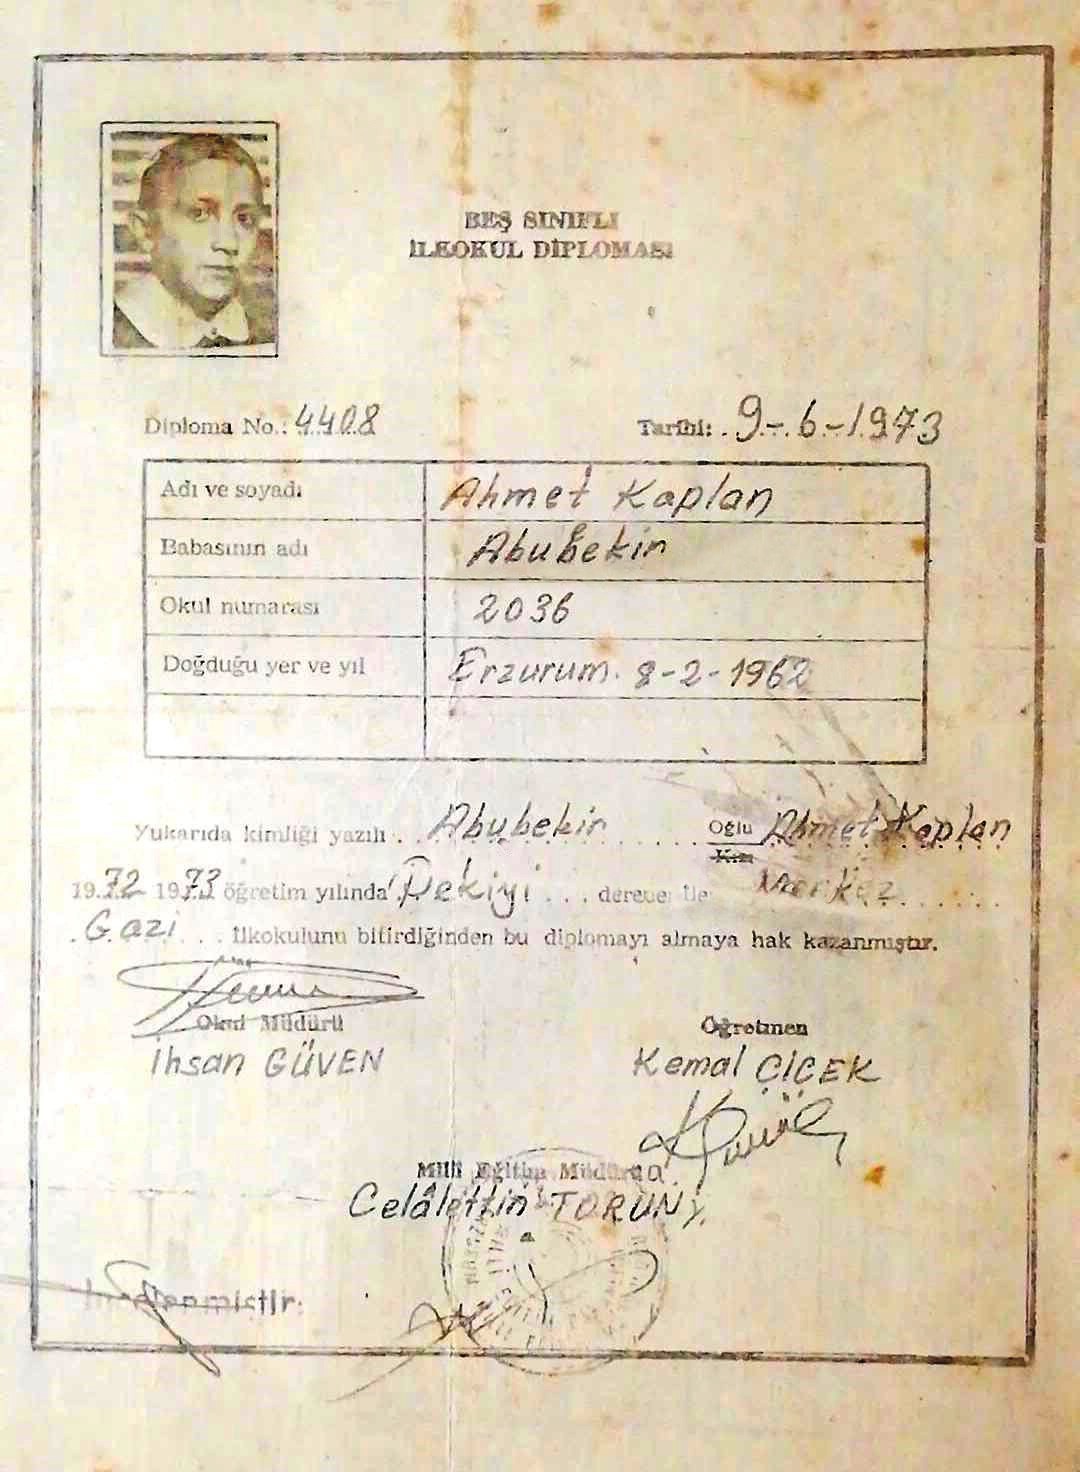 BEŞ SINIFLI
İLKOKUL DİPLOMASI
Diploma No.: 4408
Tarihi: 9-6-1973
Adı ve soyadı Ahmet Kaplan
Babasının adı Abubekir
Okul numarası 2036
Doğduğu yer ve yıl Erzurum. 8-2-1962
Yukarıda kimliği yazılı Abubekir Oğlu Ahmet Kaplan
Kızı
1972 1973 öğretim yılında Pekiyi derece ile Merkez
Gazi ilkokulunu bitirdiğinden bu diplomayı almaya hak kazanmıştır.
Okul Müdürü
İhsan GÜVEN
Öğretmen
Kemal ÇİÇEK
Milli Eğitim Müdürü a.
Celâlettin TORUN
İncelenmiştir.